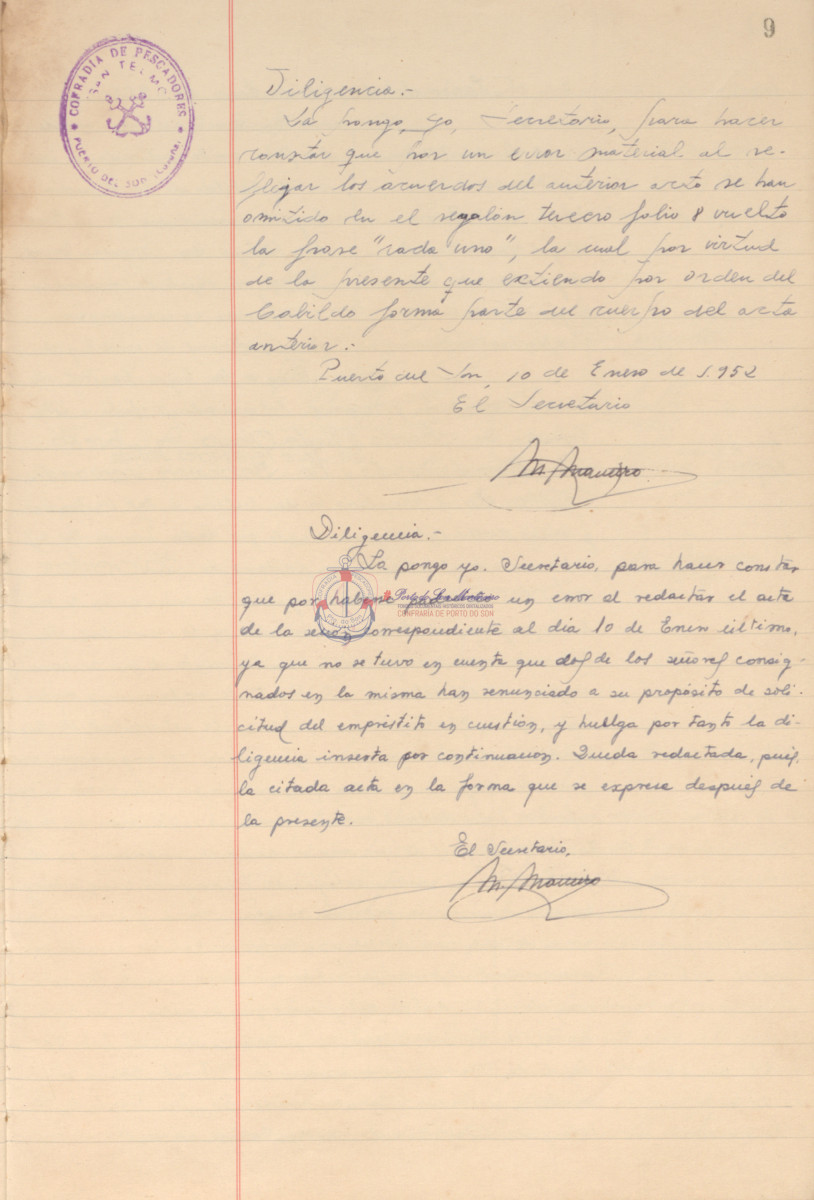 9
COFRADIA DE PESCADORES
SAN TELMO
PUERTO DEL SON (CORUÑA)
Diligencia.-
La pongo, yo, Secretario, para hacer
constar que por un error material al re-
flejar los acuerdos del anterior acta se han
omitido en el renglón tercero folio 8 vuelto
la frase "cada uno", la cual por virtud
de la presente que extiendo por orden del
Cabildo forma parte del cuerpo del acta
anterior.-
Puerto del Son, 10 de Enero de 1.952
El Secretario
Diligencia.-
La pongo yo. Secretario, para hacer constar
que por haberse un error al redactar el acta
de la sesión correspondiente al dia 10 de Enero último,
ya que no se tuvo en cuenta que dos de los señores consig-
nados en la misma han renunciado a su propósito de soli-
citud del empréstito en cuestión, y huelga por tanto la di-
ligencia inserta por continuacion. Queda redactada, pues,
la citada acta en la forma que se expresa después de
la presente.
El Secretario,
CONFRARÍA DE PORTO DO SON